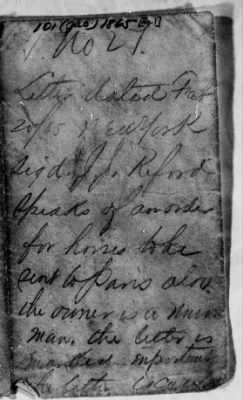 101 (JAO) 1865
No 21.
Letter dated Feb
20/65 New York
sigd J. J. Reford
speaks of an order
for horses to be
sent to Paris also
the owner is a Union
man. the letter is
marked important
letter